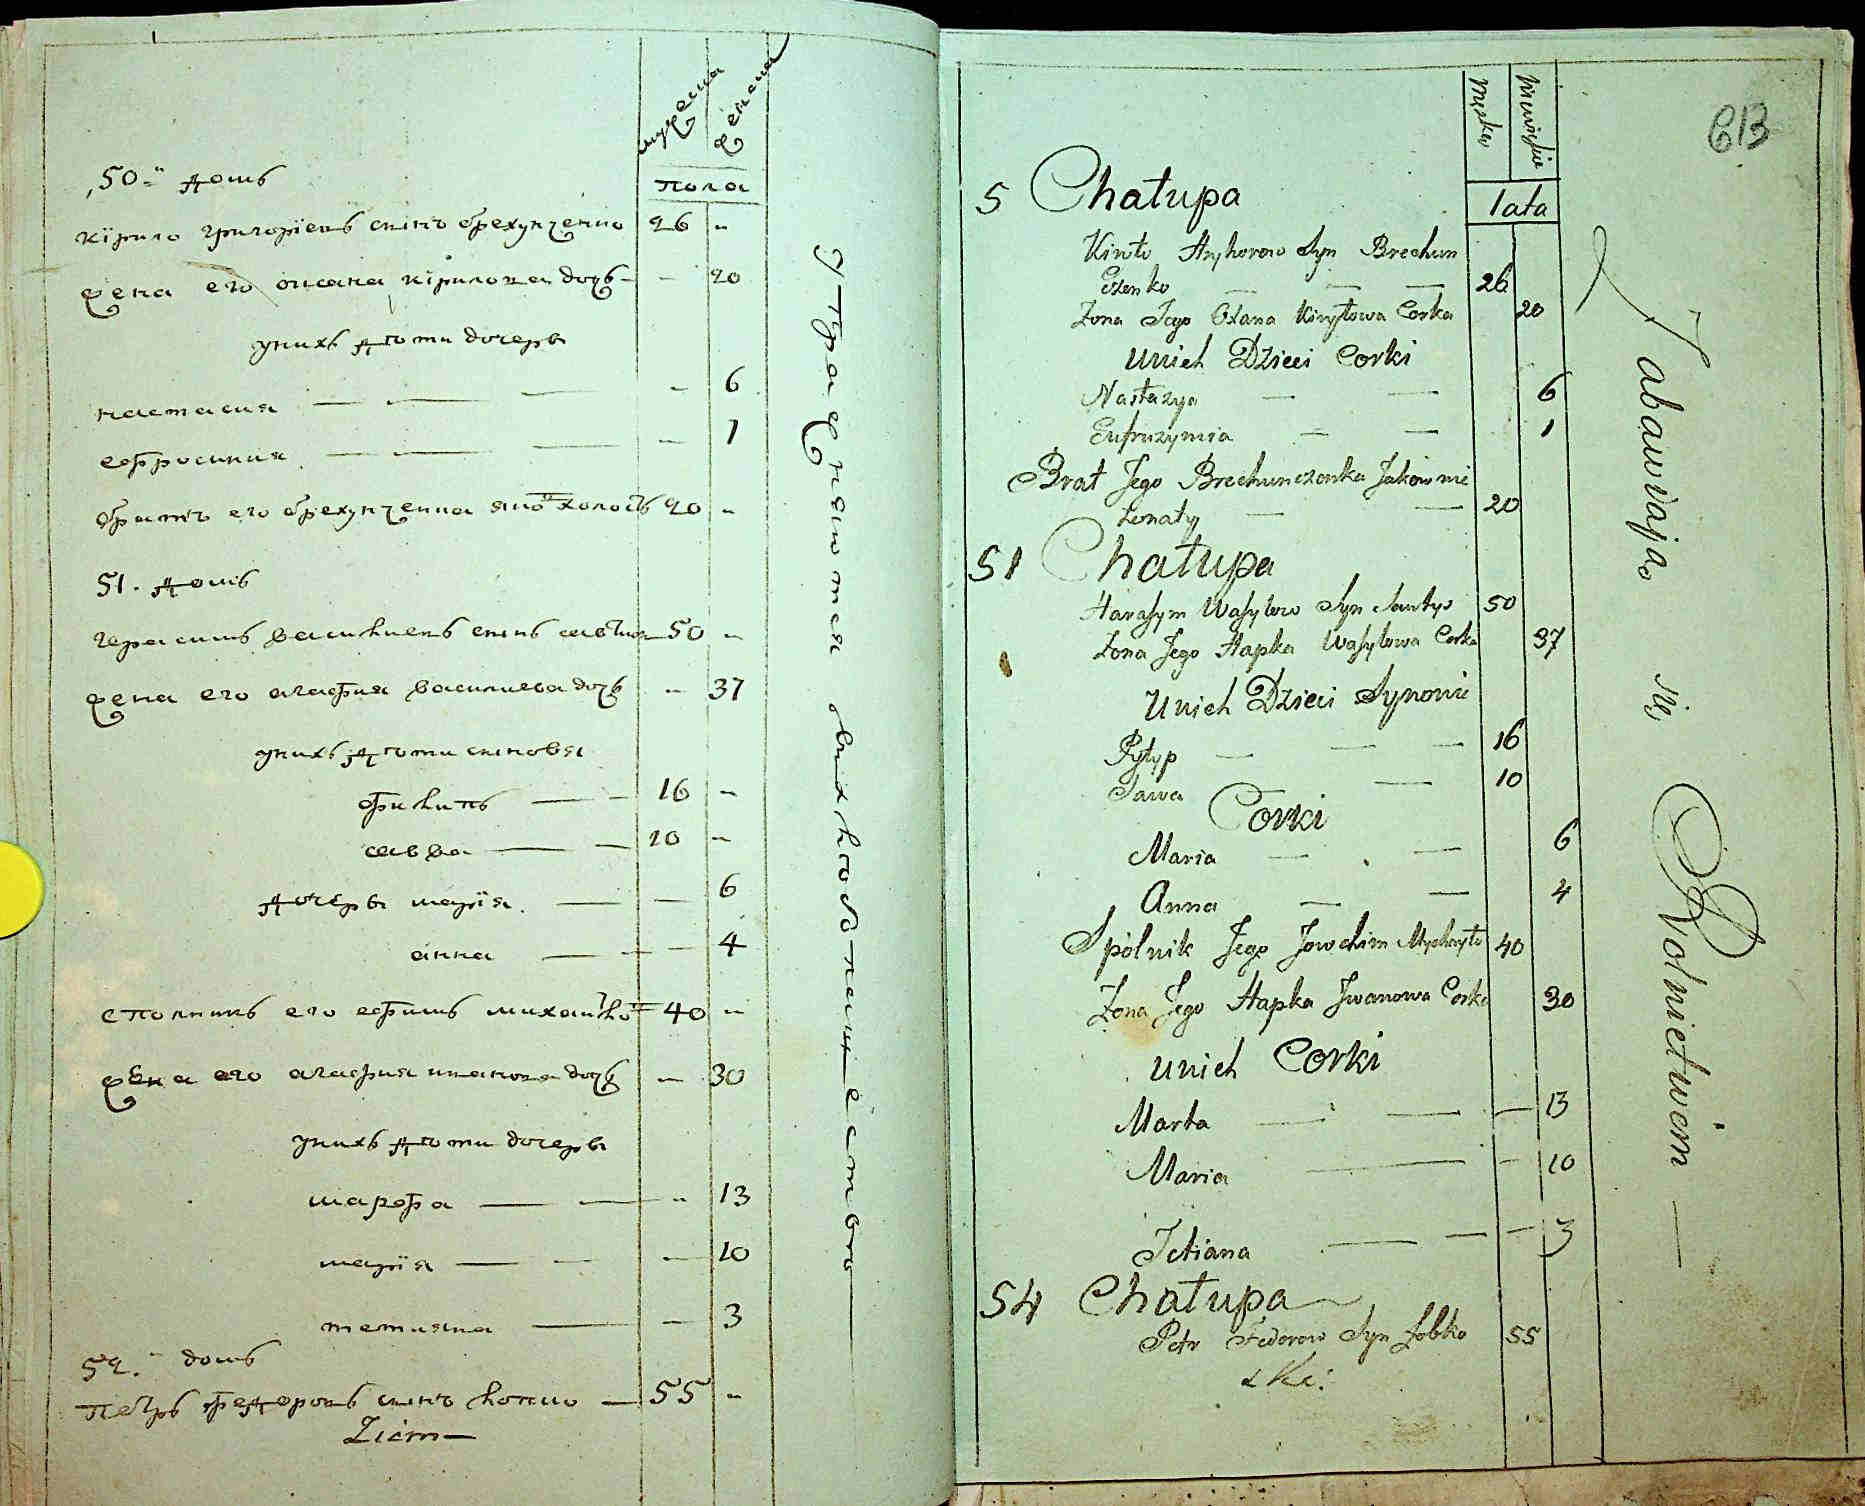 мужеска
женска
пола
50й домъ
кірило григоріевъ синъ брехунченко 26 "
жена его оксана кірилова дочь — 20
унихъ дѣти дочеры
настасия — — — " 6
ефросиния — — — — 1
братъ его брехунченка яковъ холостъ 20 "
51. домъ
герасимъ василиевъ синъ 50 "
жена его агафия василиева дочь " 37
унихъ дѣти синовья
филипъ — — 16 "
савва — — 10 "
дочеры марія. — — 6
анна — — — 4
сполникъ его ефимъ михайло 40 "
жена его агафия иванова дочь — 30
унихъ дѣти дочеры
марфа — — " 13
марія — — — 10
тетияна — — 3
52. домъ
петръ федоровъ синъ — 55 "
упражняются
вихлѣбопашестве
613
męska
żeńska
lata
5 Chałupa
Kiryło Hryhorow Syn Brechun
czenko — — — 26
Żona Jego Oxana Kiryłowa Corka 20
Unich Dzieci Corki
Nastazya — — 6
Eufruzymia — — 1
Brat Jego Brechunczonka Jakow nie
żonaty — — 20
51 Chałupa
Harasym Wasylow Syn 50
Żona Jego Hapka Wasylowa Corka 37
Unich Dzieci Synowie
Pylyp — — — 16
Sawa — 10
Corki
Maria — — 6
Anna — — 4
Spólnik Jego Jowchim Mychayło 40
Żona Jego Hapka Iwanowa Corka 30
unich Corki
Marta — — — 13
Maria — — 10
Tetiana — — — 3
54 Chałupa
Petr Fedorow Syn 55
Zabawiają się Rolnictwem —